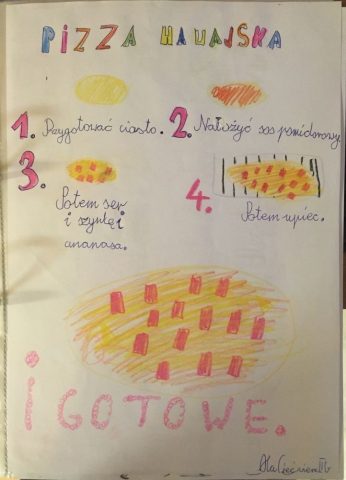 PIZZA HAWAJSKA
1. Przygotować ciasto.
2. Nałożyć sos pomidorowy.
3.
Potem ser
i szynkę i
ananasa.
4.
Potem upiec.
i GOTOWE.
Ala